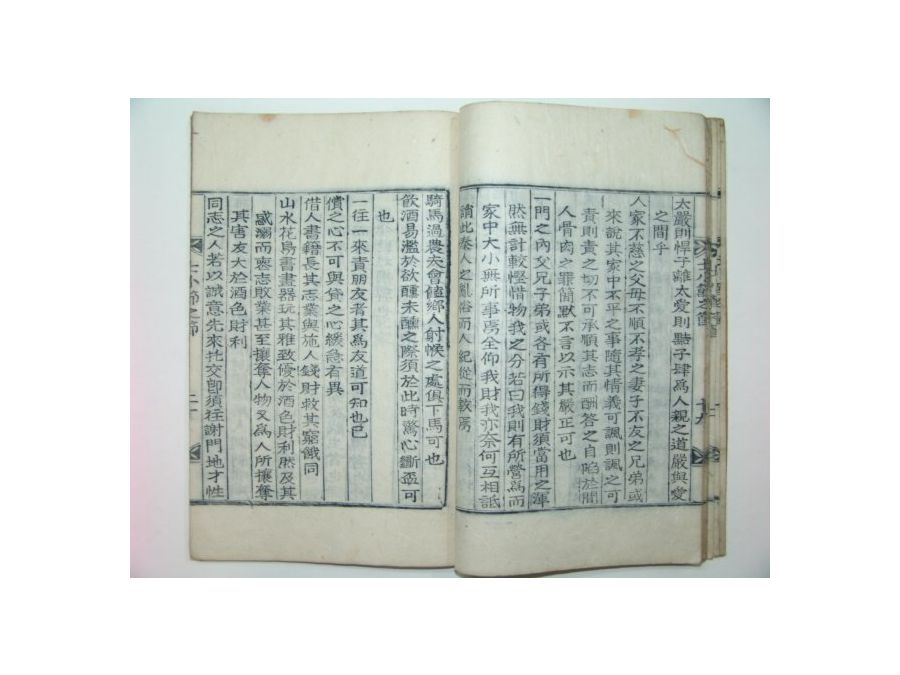 太嚴則悍子離太愛則黠子肆爲人親之道嚴與愛
之間乎
人家不慈之父母不順不孝之妻子不友之兄弟或
來說其家中不平之事隨其情義可諷則諷之可
責則責之切不可承順其志而酬答之自陷於間
人骨肉之罪簡默不言以示其嚴正可也
一門之內父兄子弟或各有所得錢財須當用之渾
然無計較慳惜物我之分若曰我則有所營爲而
家中大小無所事焉全仰我財我亦奈何互相詆
謮此秦人之亂俗而人紀從而斁焉
騎馬過農夫會饁鄉人射帿之處俱下馬可也
飮酒易濫於欲醺未醺之際須於此時驚心斷盃可
也
一往一來責朋友者其爲友道可知也已
償之心不可與貸之心緩急有異
借人書籍長其志業與施人錢財救其窮餓同
山水花鳥書畫器玩其雅致優於酒色財利然及其
惑溺而喪志敗業甚至攘奪人物又爲人所攘奪
其害友大於酒色財利
同志之人若以誠意先來托交卽須往謝門地才性
士小節之節
二十